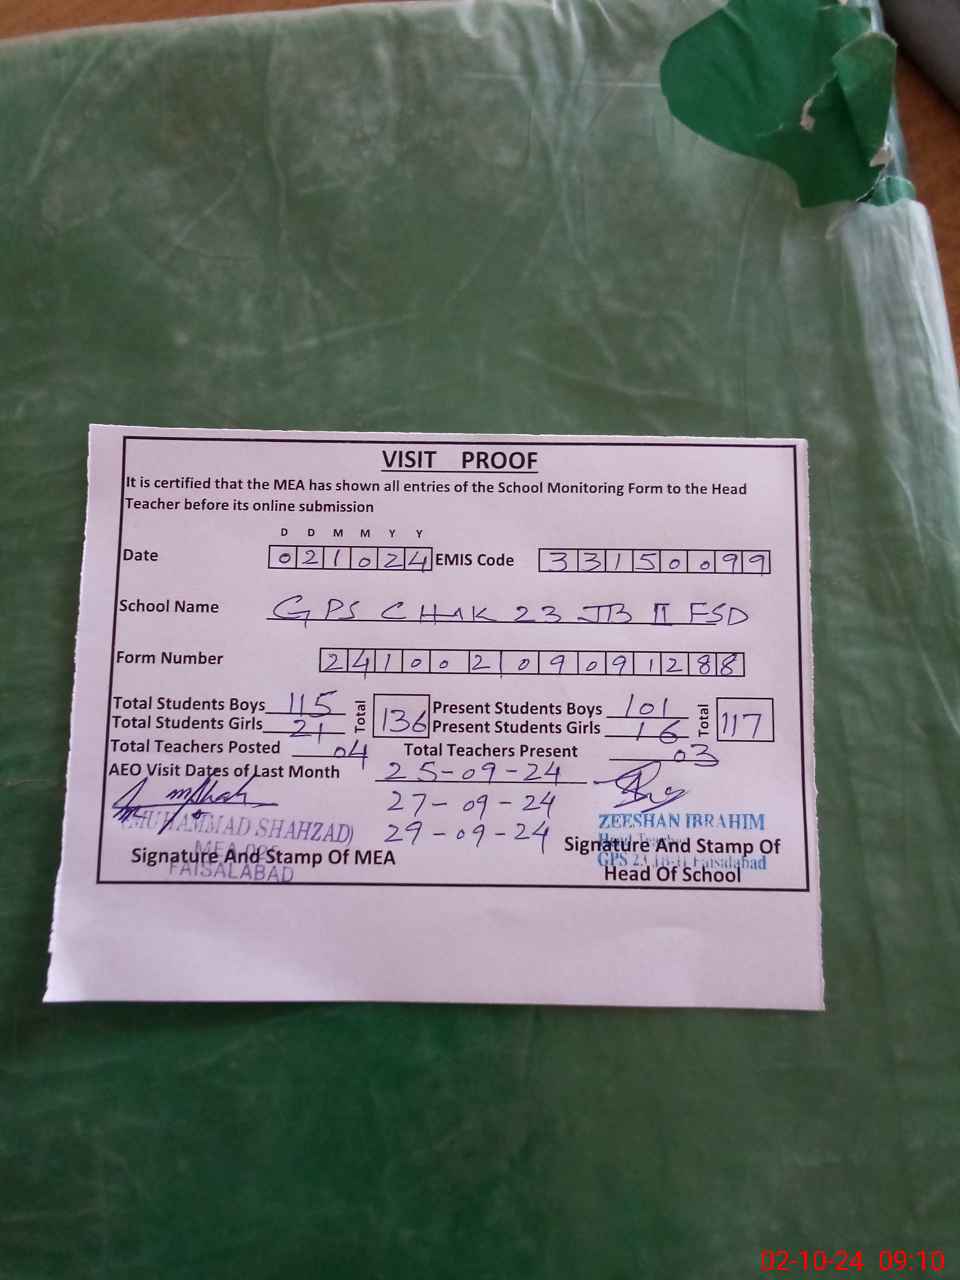 VISIT PROOF
It is certified that the MEA has shown all entries of the School Monitoring Form to the Head
Teacher before its online submission
D D M M Y Y
Date 021024 EMIS Code 33150099
School Name GPS CHAK 23 JB II FSD
Form Number 24100209091288
Total Students Boys 115 Total 136 Present Students Boys 101 Total 117
Total Students Girls 21 Present Students Girls 16
Total Teachers Posted 04 Total Teachers Present 03
AEO Visit Dates of Last Month 25-09-24
27-09-24
29-09-24
(MUHAMMAD SHAHZAD)
MEA
FAISALABAD
Signature And Stamp Of MEA
ZEESHAN IBRAHIM
Head Teacher
GPS 23 JB-II Faisalabad
Signature And Stamp Of
Head Of School
02-10-24 09:10